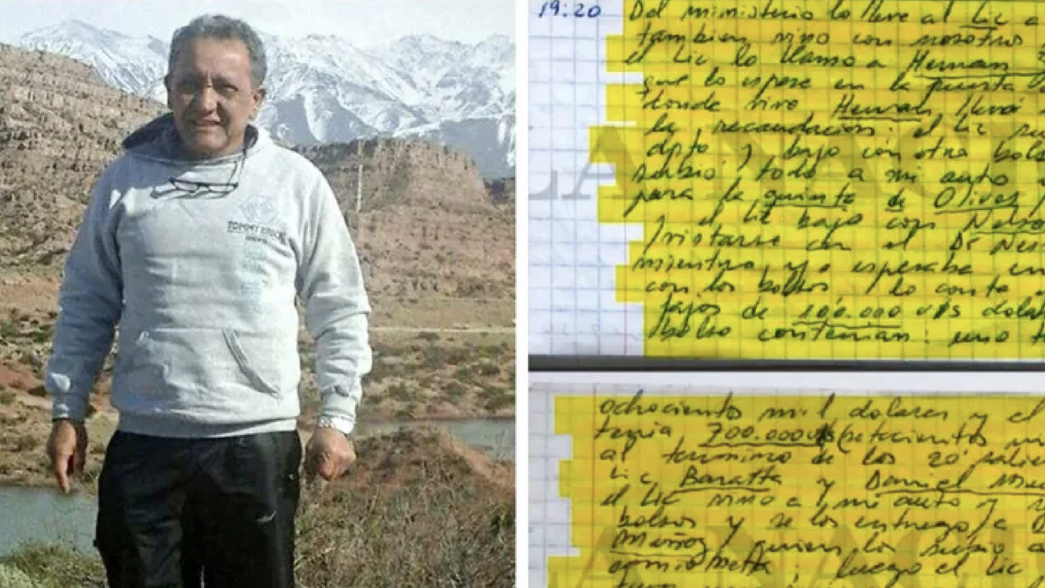 TOMMY
19:20
Del ministerio lo lleve al Lic a
tambien vino con nosotros
el Lic lo llamo a Hernan
que lo espere en la puerta
donde vive Hernan llevó
la recaudacion. el Lic
dpto y bajo con otro bols
subio todo a mi auto
para la quinta de Olivos
y el Lic bajo con Nels
con el Dr Nes
mientras yo esperaba en
con los bolsos / lo conto
fajos de 100.000 u$s dola
bolso contenian: uno t
LA NAC
ochociento mil dolares y el
tenia 700.000 u$s (setecientos mi
al termino de los 20 minu
Lic Baratta y Daniel Mu
el Lic vino a mi auto y
bolsos y se los entrego a D
Muñoz quien los subio a
camioneta; luego el Lic